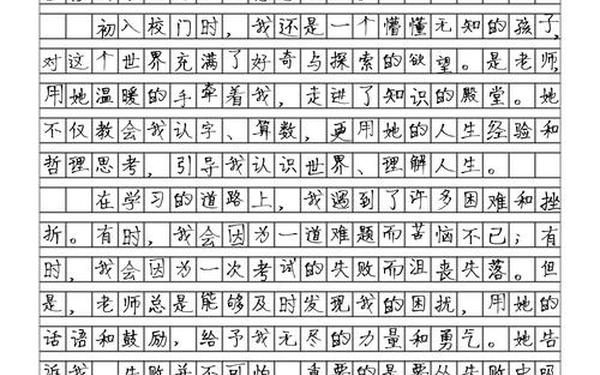 初入校门时，我还是一个懵懂无知的孩子，
对这个世界充满了好奇与探索的欲望。是老师，
用她温暖的手牵着我，走进了知识的殿堂。她
不仅教会我认字、算数，更用她的人生经验和
哲理思考，引导我认识世界、理解人生。
在学习的道路上，我遇到了许多困难和挫
折。有时，我会因为一道难题而苦恼不已；有
时，我会因为一次考试的失败而沮丧失落。但
是，老师总是能够及时发现我的困扰，用她的
话语和鼓励，给予我无尽的力量和勇气。她告
诉我，失败并不可怕，重要的是要从失败中吸